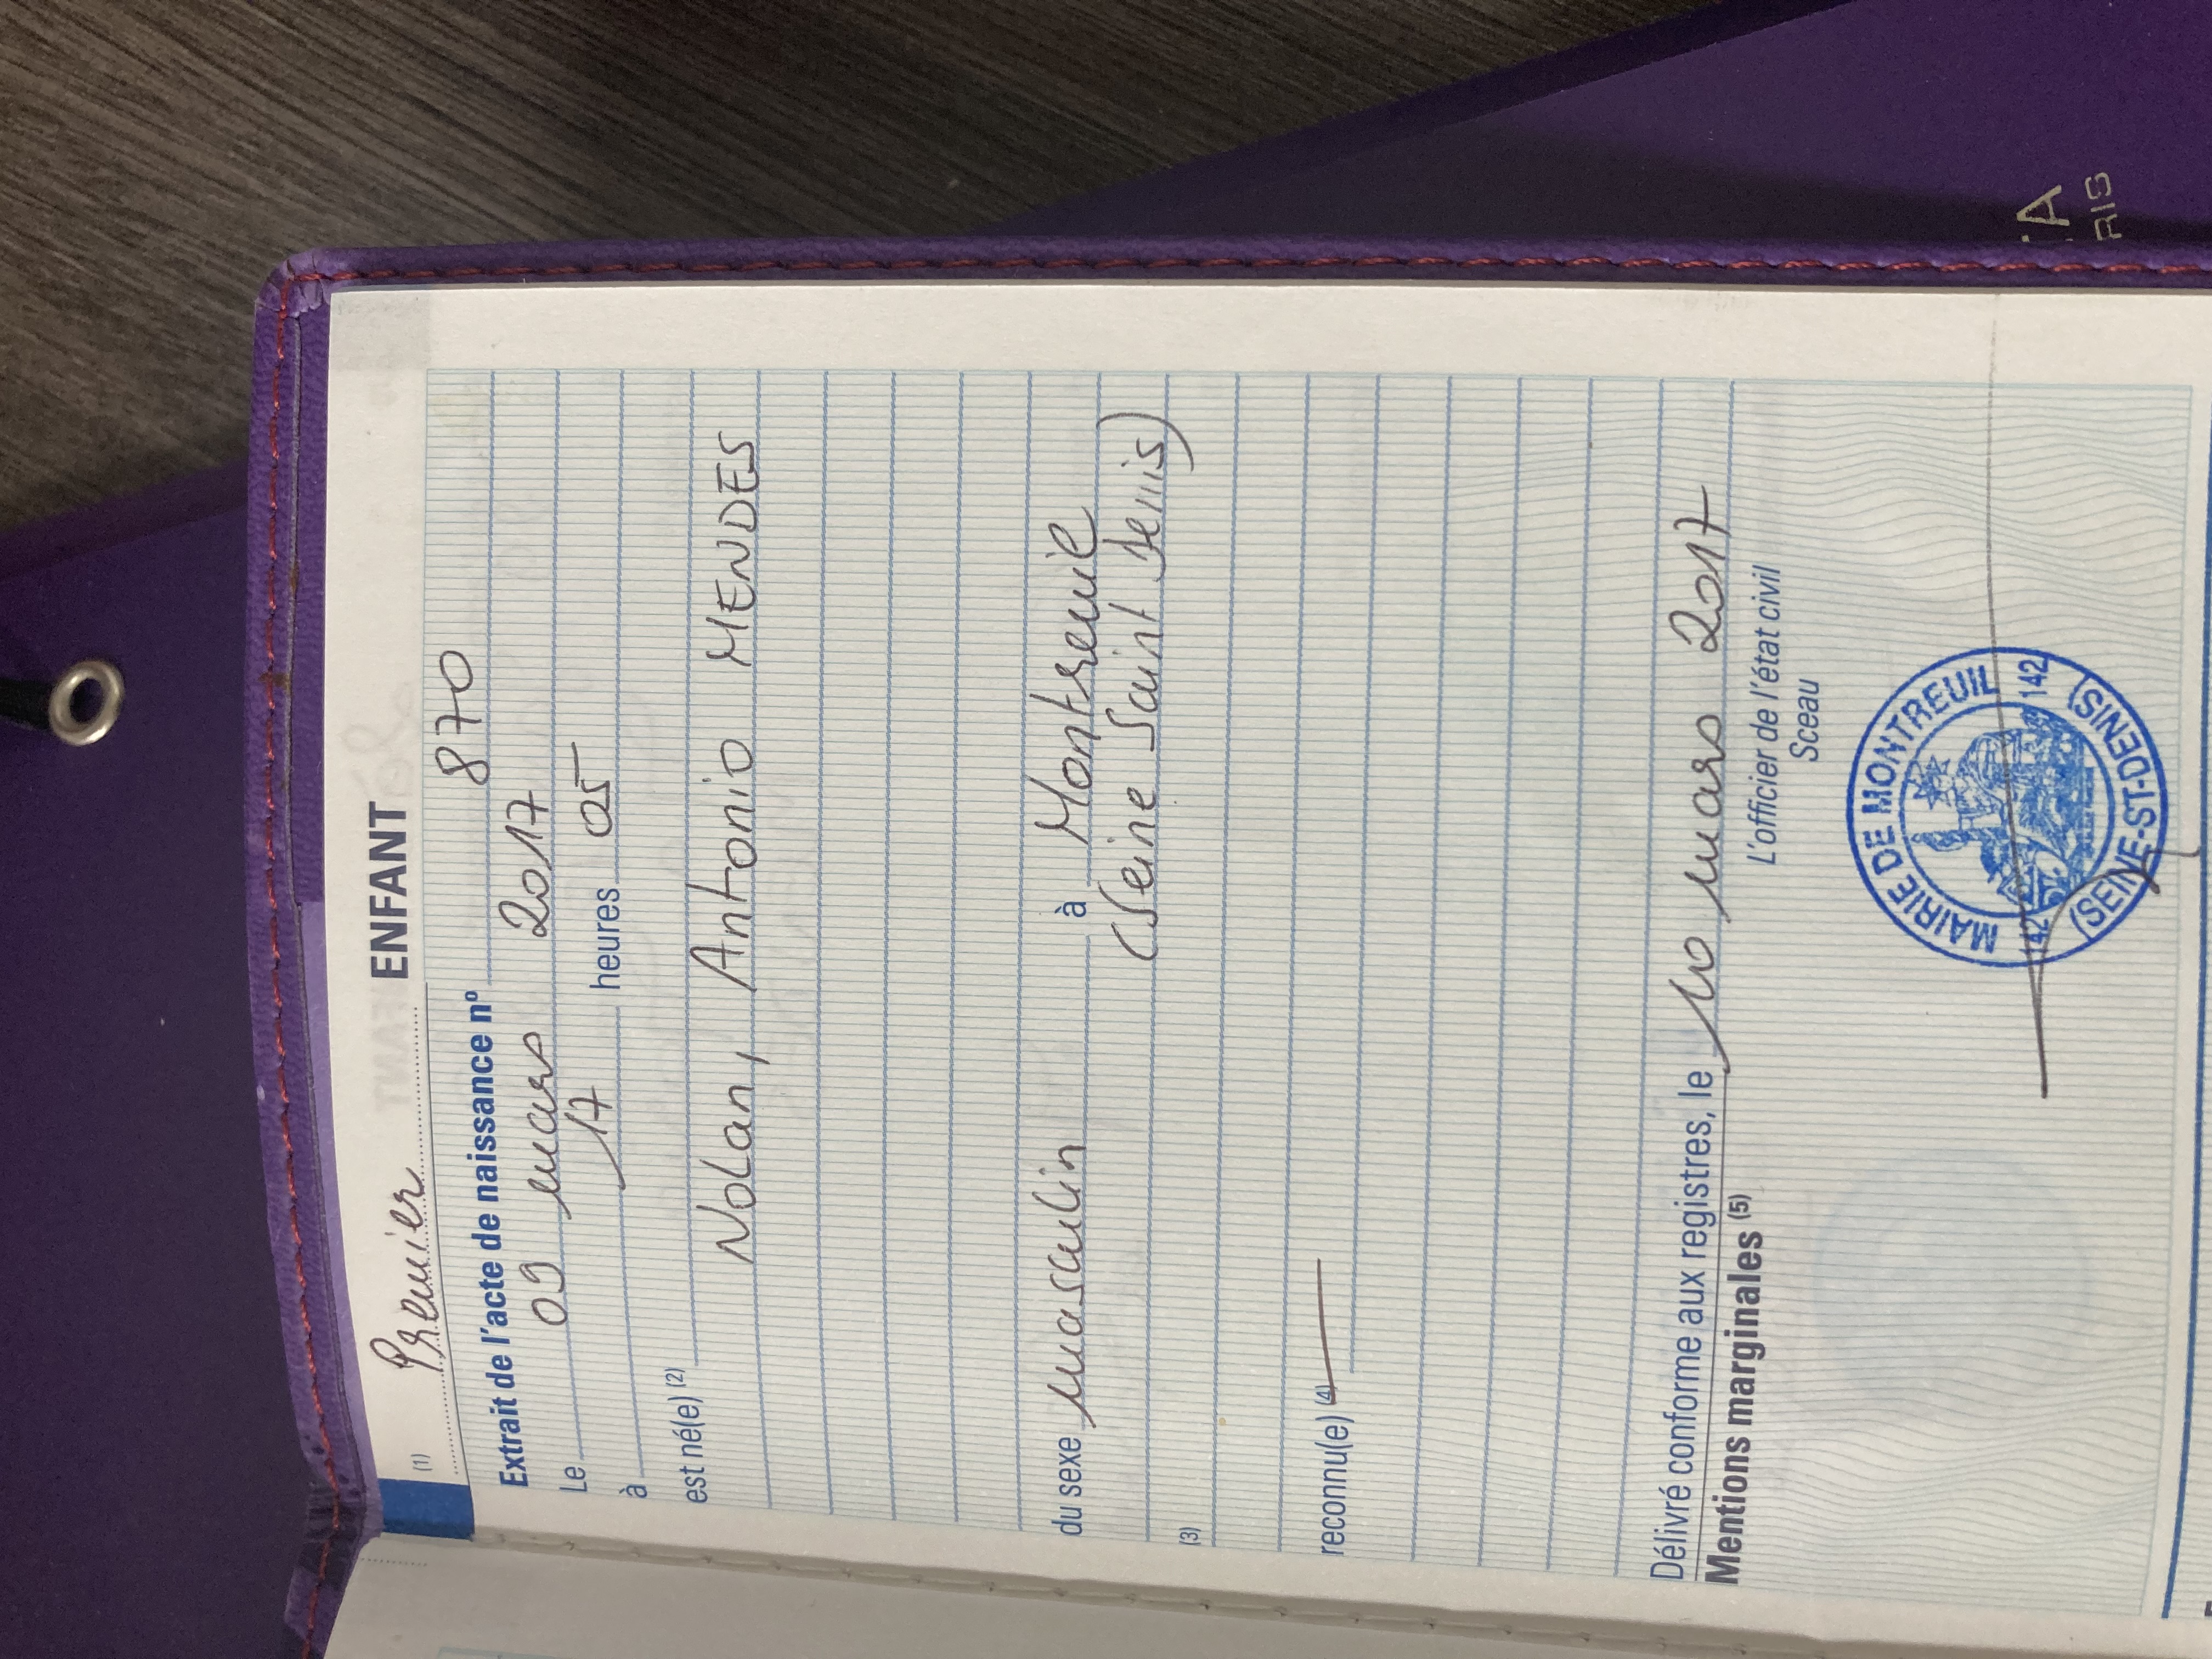 (1) Premier ENFANT
Extrait de l'acte de naissance nº 870
Le 09 mars 2017
à 17 heures 05
est né(e) (2) Nolan, Antonio MENDES
du sexe masculin à Montreuil
(Seine Saint Denis)
(3)
reconnu(e) (4) —
Délivré conforme aux registres, le 10 mars 2017
Mentions marginales (5)
L'officier de l'état civil
Sceau
MAIRIE DE MONTREUIL
142 142
(SEINE-ST-DENIS)